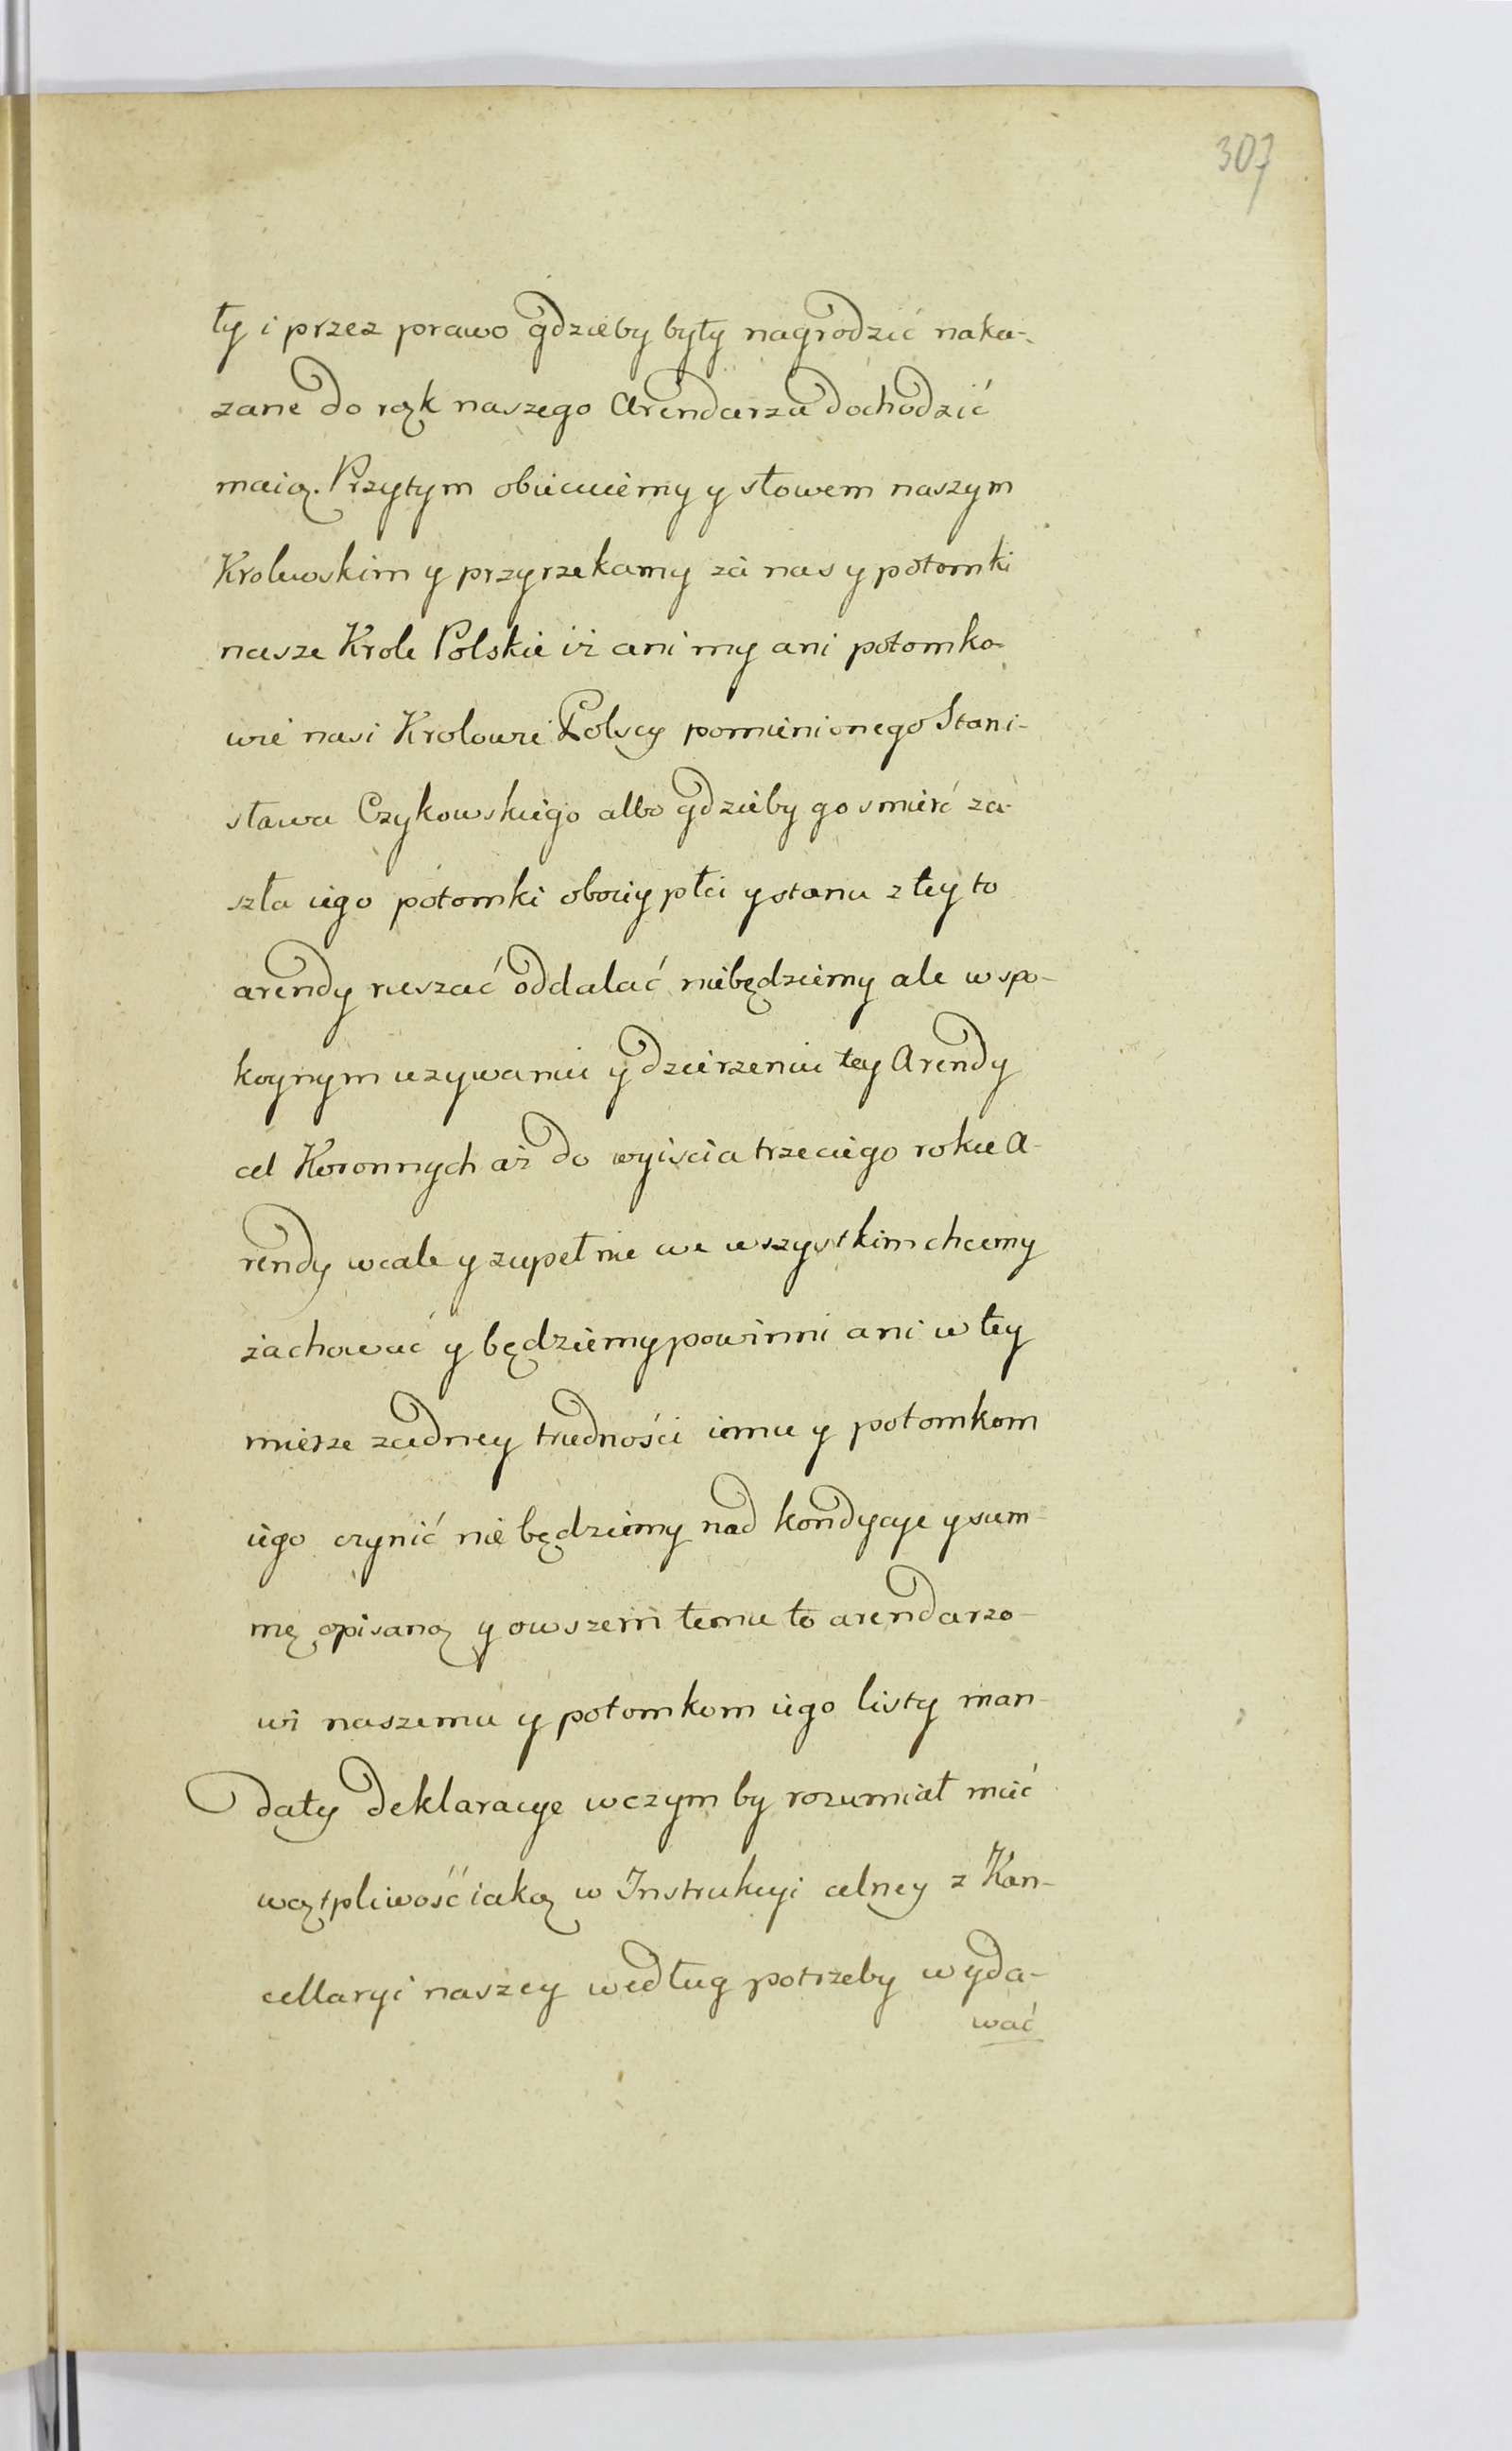 307
ty i przez prawo gdzieby były nagrodzić naka-
zane do rąk naszego Arendarza dochodzić
maią. Przytym obiecuiemy y słowem naszym
Krolewskim y przyrzekamy za nas y potomki
nasze Krole Polskie iż ani my ani potomko-
wie nasi Krolowie Polscy pomienionego Stani-
sława Czykowskiego albo gdzieby go smierć za-
szła iego potomki oboiey płci y stanu z tey to
arendy ruszać oddalać niebędziemy ale w spo-
koynym uzywaniu y dzierzeniu tey Arendy
cel Koronnych aż do wyiścia trzeciego roku A-
rendy wcale y zupełnie we wszystkim chcemy
zachować y będziemy powinni ani w tey
mierze zadney trudności iemu y potomkom
iego czynić nie będziemy nad kondycye y sum-
mę opisaną y owszem temu to arendarzo-
wi naszemu y potomkom iego listy man-
daty deklaracye w czym by rozumiał mieć
wątpliwość iaką w Instrukcyi celney z Kan-
cellaryi naszey według potrzeby wyda-
wać